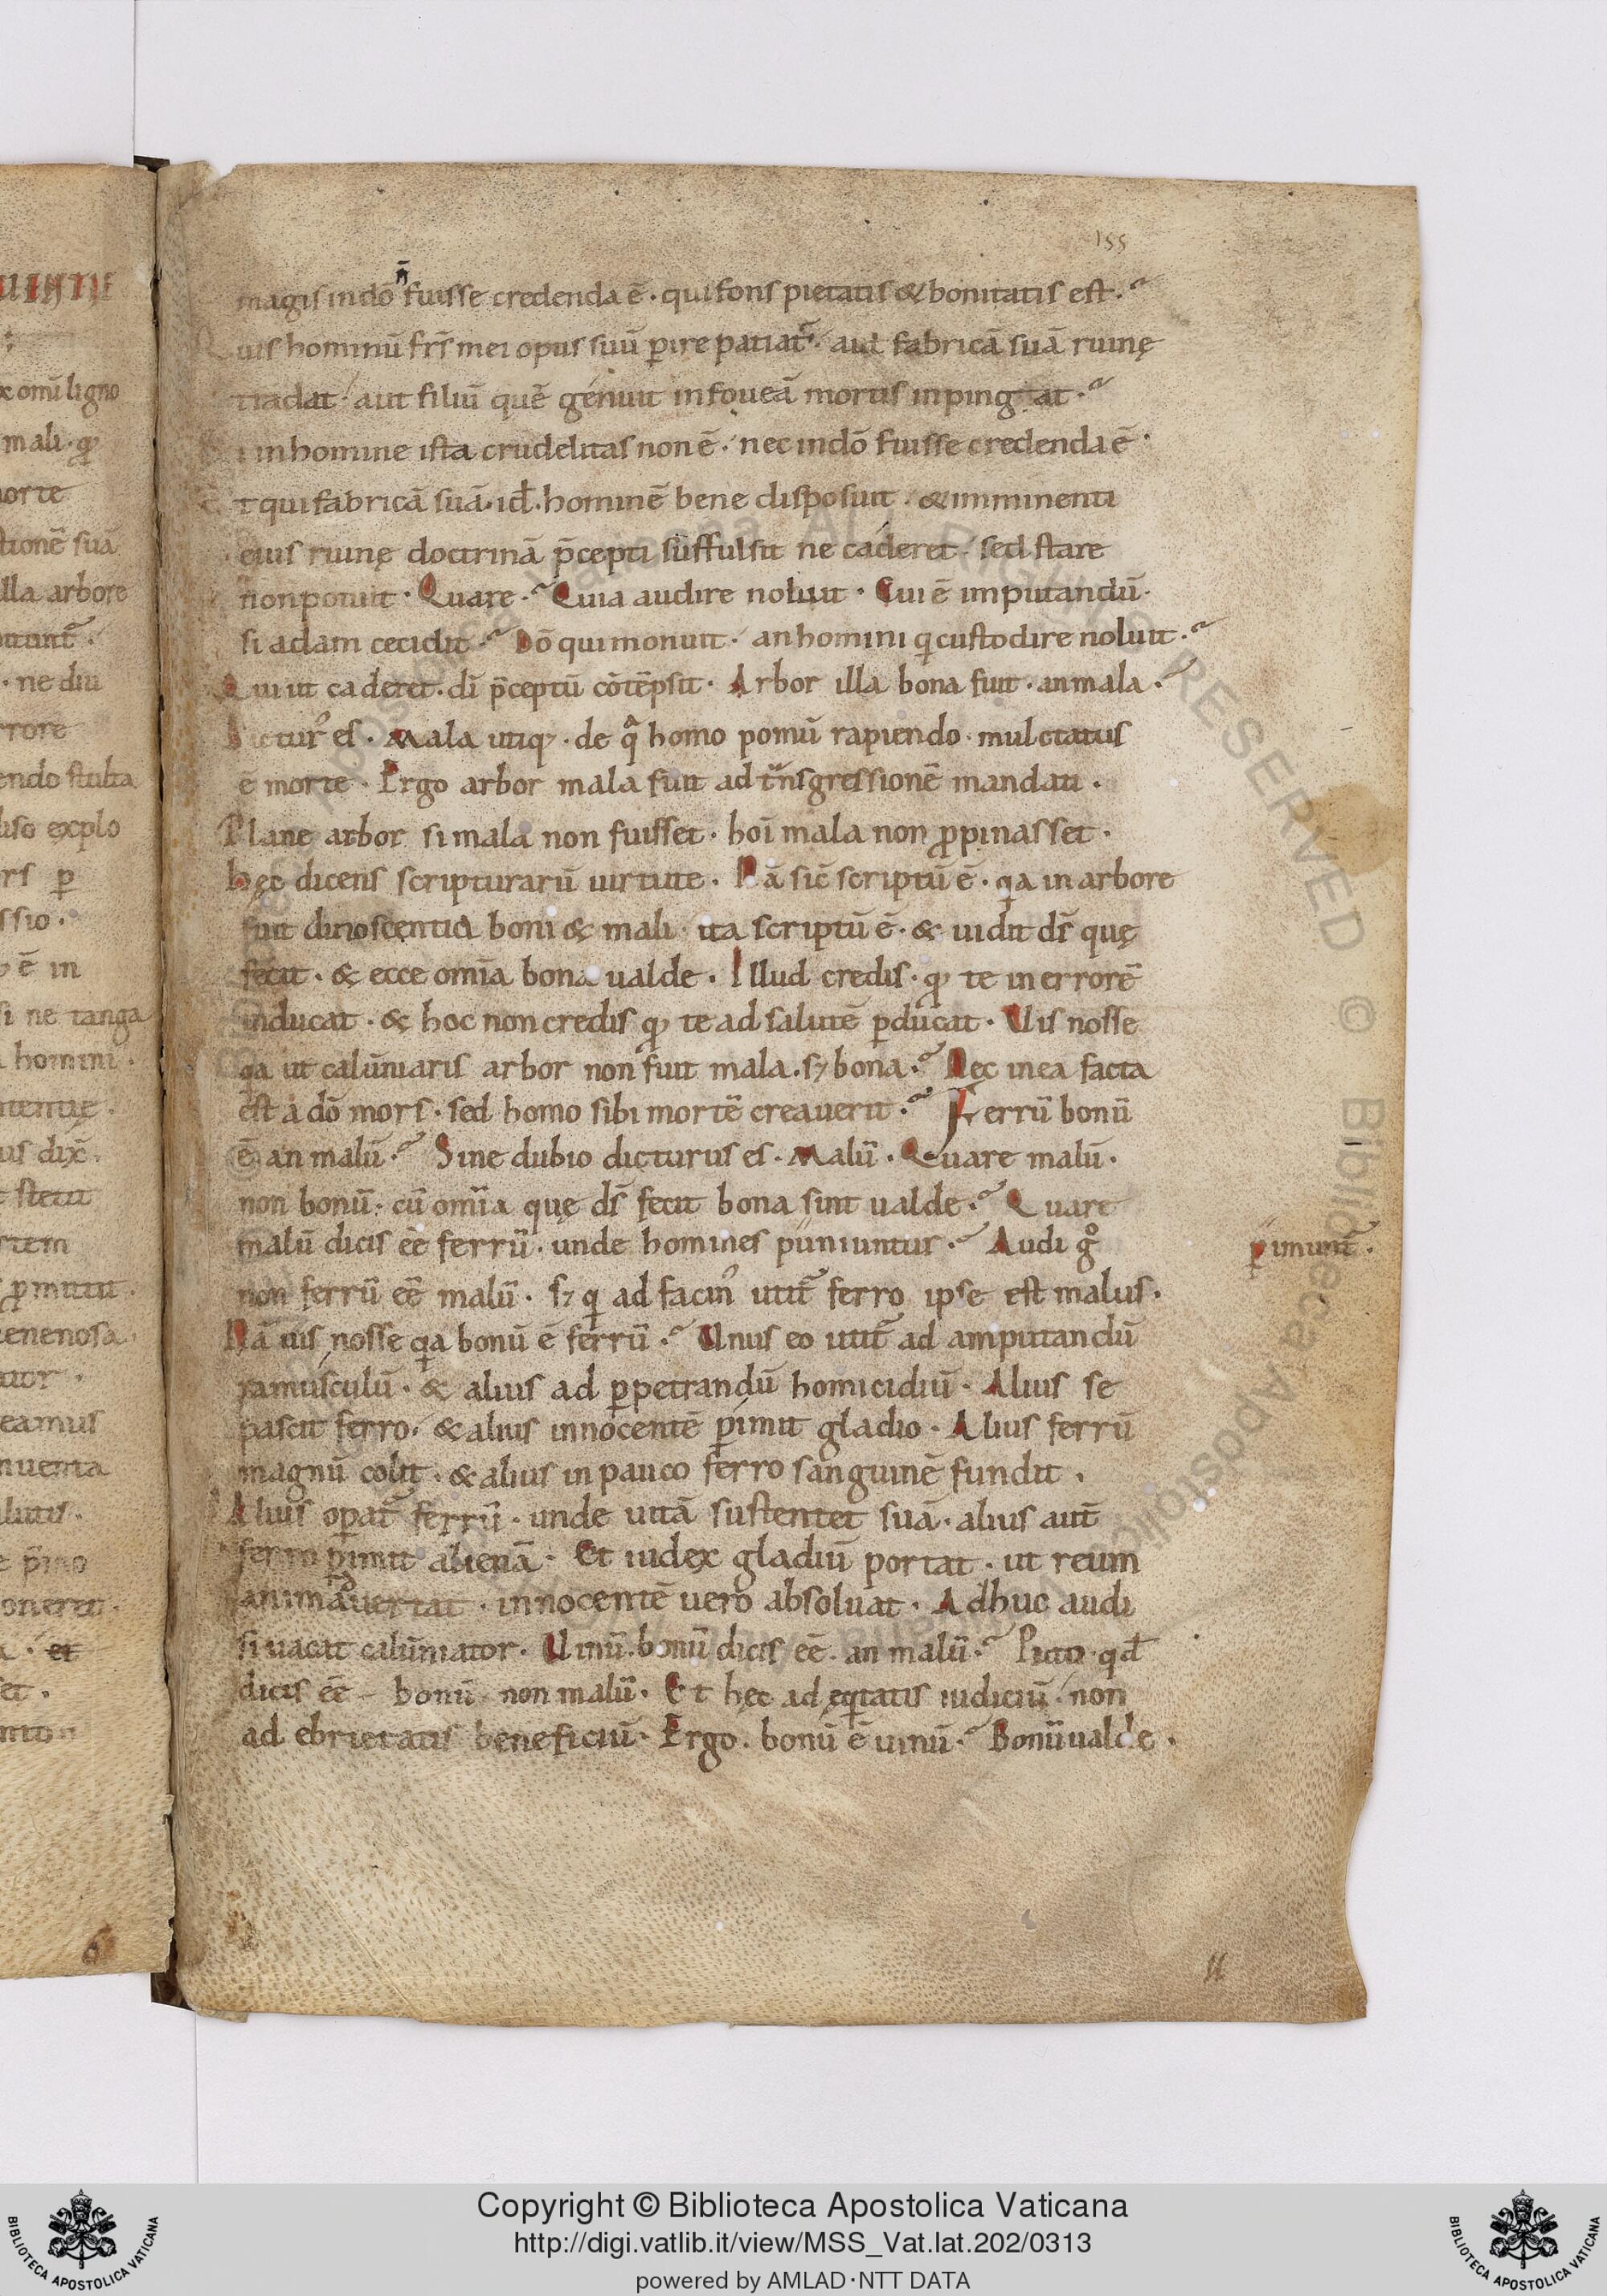 155
magis in dō n̄ fuisse credenda ē · qui fons pietatis & bonitatis est ·
uis hominū frs̄ mei opus suū ꝑire patiat᷑ · aut fabricā suā ruinę
tradat · aut filiū quē genuit in foueā mortis inpingat ·
i in homine ista crudelitas non ē · nec in dō fuisse credenda ē ·
t qui fabricā suā · id ÷ hominē bene disposuit · & imminenti
eius ruinę doctrinā p̄cepti suffulsit ne caderet · sed stare
non potuit · Quare · Quia audire noluit · Cui ē imputandū ·
si adam cecidit · Dō qui monuit · an homini qͥ custodire noluit ·
Qui ut caderet · dī p̄ceptū cōtēpsit · Arbor illa bona fuit · an mala ·
Dictur᷒ es · Mala utiqꝫ · de qͣ homo pomū rapiendo · mulctatus
ē morte · Ergo arbor mala fuit ad tͣnsgressionē mandati ·
Plane arbor si mala non fuisset · hoī mala non ꝓpinasset ·
hęc dicens scripturarū uirtute · Nā sic̄ scriptū ē · qͥa in arbore
fuit dinoscentia boni & mali · ita scriptū ē · & uidit ds̄ quę
fecit · & ecce omīa bona ualde · Illud credis · qꝫ te in errorē
inducat · & hoc non credis qꝫ te ad salutē ꝑducat · Uis nosse
qͥa ut calūniaris arbor non fuit mala · sꝫ bona · Nec in ea facta
est a dō mors · sed homo sibi mortē creauerit · Ferrū bonū
ē an malū · Sine dubio dicturus es · Malū · Quare malū ·
non bonū · cū omīa quę ds̄ fecit bona sint ualde · Quare
malū dicis eē ferrū · unde homines puniuntur · Audi gͦ
ꝑimunt᷑ ·
non ferrū eē malū · sꝫ qͥ ad facin᷒ utit᷑ ferro ipse est malus ·
Nā uis nosse qͥa bonū ē ferrū · Unus eo utit᷑ ad amputandū
ramusculū · & alius ad ꝑpetrandū homicidiū · Alius se
pascit ferro · & alius innocentē ꝑimit gladio · Alius ferrū
magnū colit · & alius in pauco ferro sanguinē fundit ·
Alius oꝑat᷑ ferrū · unde uitā sustentet suā · alius aut̄
ferro ꝑimit alienā · Et iudex gladiū portat · ut reum
animaduertat · innocentē uero absoluat · Adhuc audi
si uacat calūniator · Uinū bonū dicis eē · an malū · Puto · qd̄
dicis eē bonū non malū · Et hęc ad ęqͥtatis iudiciū · non
ad ebrietatis beneficiū · Ergo · bonū ē uinū · Bonū ualde ·
Copyright © Biblioteca Apostolica Vaticana
http://digi.vatlib.it/view/MSS_Vat.lat.202/0313
powered by AMLAD·NTT DATA